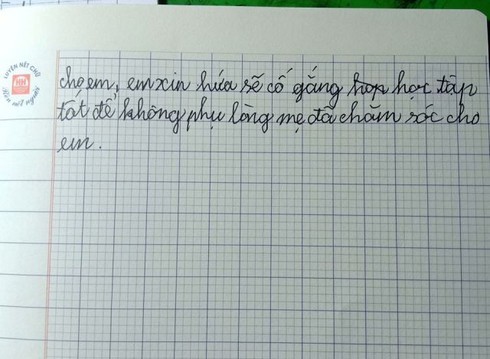 LUYỆN NÉT CHỮ
Rèn nết người
cho em, em xin hứa sẽ cố gắng học tập
tốt để không phụ lòng mẹ đã chăm sóc cho
em.